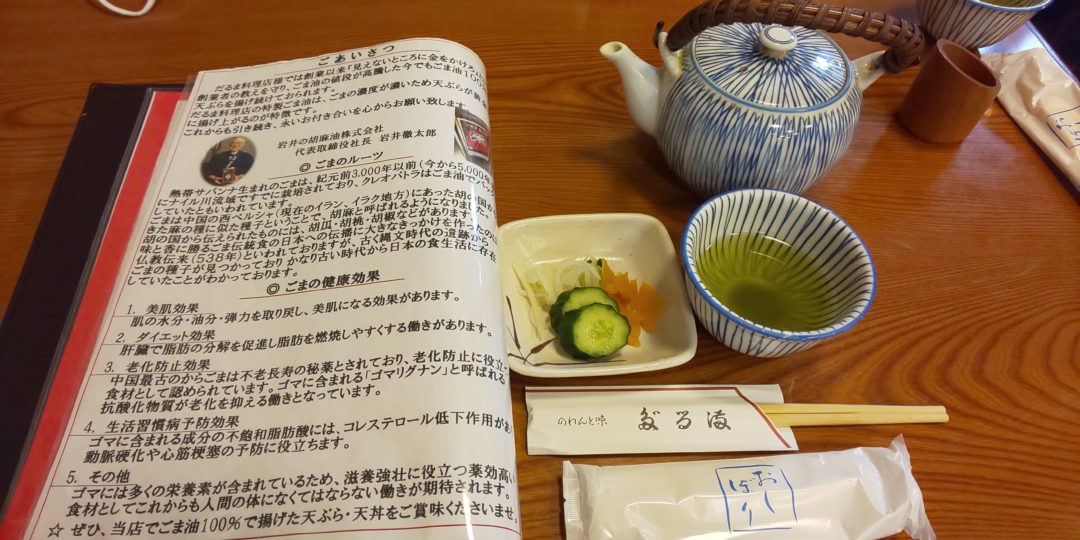 ごあいさつ
だるま料理店様では創業以来「見えないところに金をかけろ
創業者の教えを守り、ごま油の値段が高騰した今でもごま油10
天ぷらを揚げ続けておられます。
だるま料理店の特製ごま油は、ごまの濃度が濃いため天ぷらが
に揚げ上がるのが特徴です。
これからも引き続き、永いお付き合いを心からお願い致します
岩井の胡麻油株式会社
代表取締役社長 岩井徹太郎
◎ ごまのルーツ
熱帯サバンナ生まれのごまは、紀元前3,000年以前(今から5,000年
にナイル川流域ですでに栽培されており、クレオパトラはごま油でパッ
していたともいわれています。
ごまは中国の西ペルシャ(現在のイラン、イラク地方)にあった胡の国か
きた麻の種に似た種子ということで、胡麻と呼ばれるようになりました。
胡の国から伝えられたものには、胡瓜・胡桃・胡椒などがあります
味と香に勝るごま伝統食の日本への伝播に大きなきっかけを作ったのは
仏教伝来(538年)といわれておりますが、古く縄文時代の遺跡から
ごまの種子が見つかっており かなり古い時代から日本の食生活に存在
していたことがわかっております。
◎ ごまの健康効果
1. 美肌効果
肌の水分・油分・弾力を取り戻し、美肌になる効果があります。
2. ダイエット効果
肝臓で脂肪の分解を促進し脂肪を燃焼しやすくする働きがあります。
3. 老化防止効果
中国最古のからごまは不老長寿の秘薬とされており、老化防止に役立つ
食材として認められています。ゴマに含まれる「ゴマリグナン」と呼ばれる
抗酸化物質が老化を抑える働きとなっています。
4. 生活習慣病予防効果
ゴマに含まれる成分の不飽和脂肪酸には、コレステロール低下作用があり
動脈硬化や心筋梗塞の予防に役立ちます。
5. その他
ゴマには多くの栄養素が含まれているため、滋養強壮に役立つ薬効高い
食材としてこれからも人間の体になくてはならない働きが期待されます。
☆ ぜひ、当店でごま油100%で揚げた天ぷら・天丼をご賞味くださいませ。
のれんと味 だるま
おしぼり